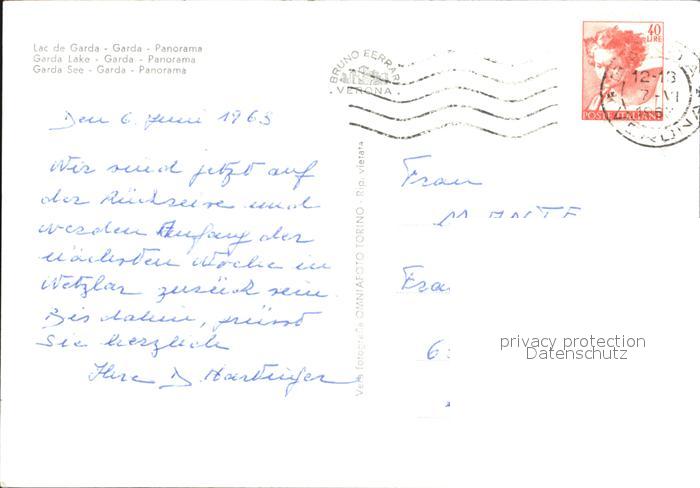 Lac de Garda - Garda - Panorama
Garda Lake - Garda - Panorama
Garda See - Garda - Panorama
BRUNO FERRARI
VERONA
40
LIRE
12-13
7-VI
POSTE ITALIANE
Den 6. Juni 1963
Wir sind jetzt auf
der Rückreise und
werden Anfang der
nächsten Woche in
Wetzlar zurück sein.
Bis dahin, grüsst
Sie herzlich
Ihre D. Hartinger
Vera fotografia OMNIAFOTO TORINO - Rip. vietata
Frau
Fra
6
privacy protection
Datenschutz